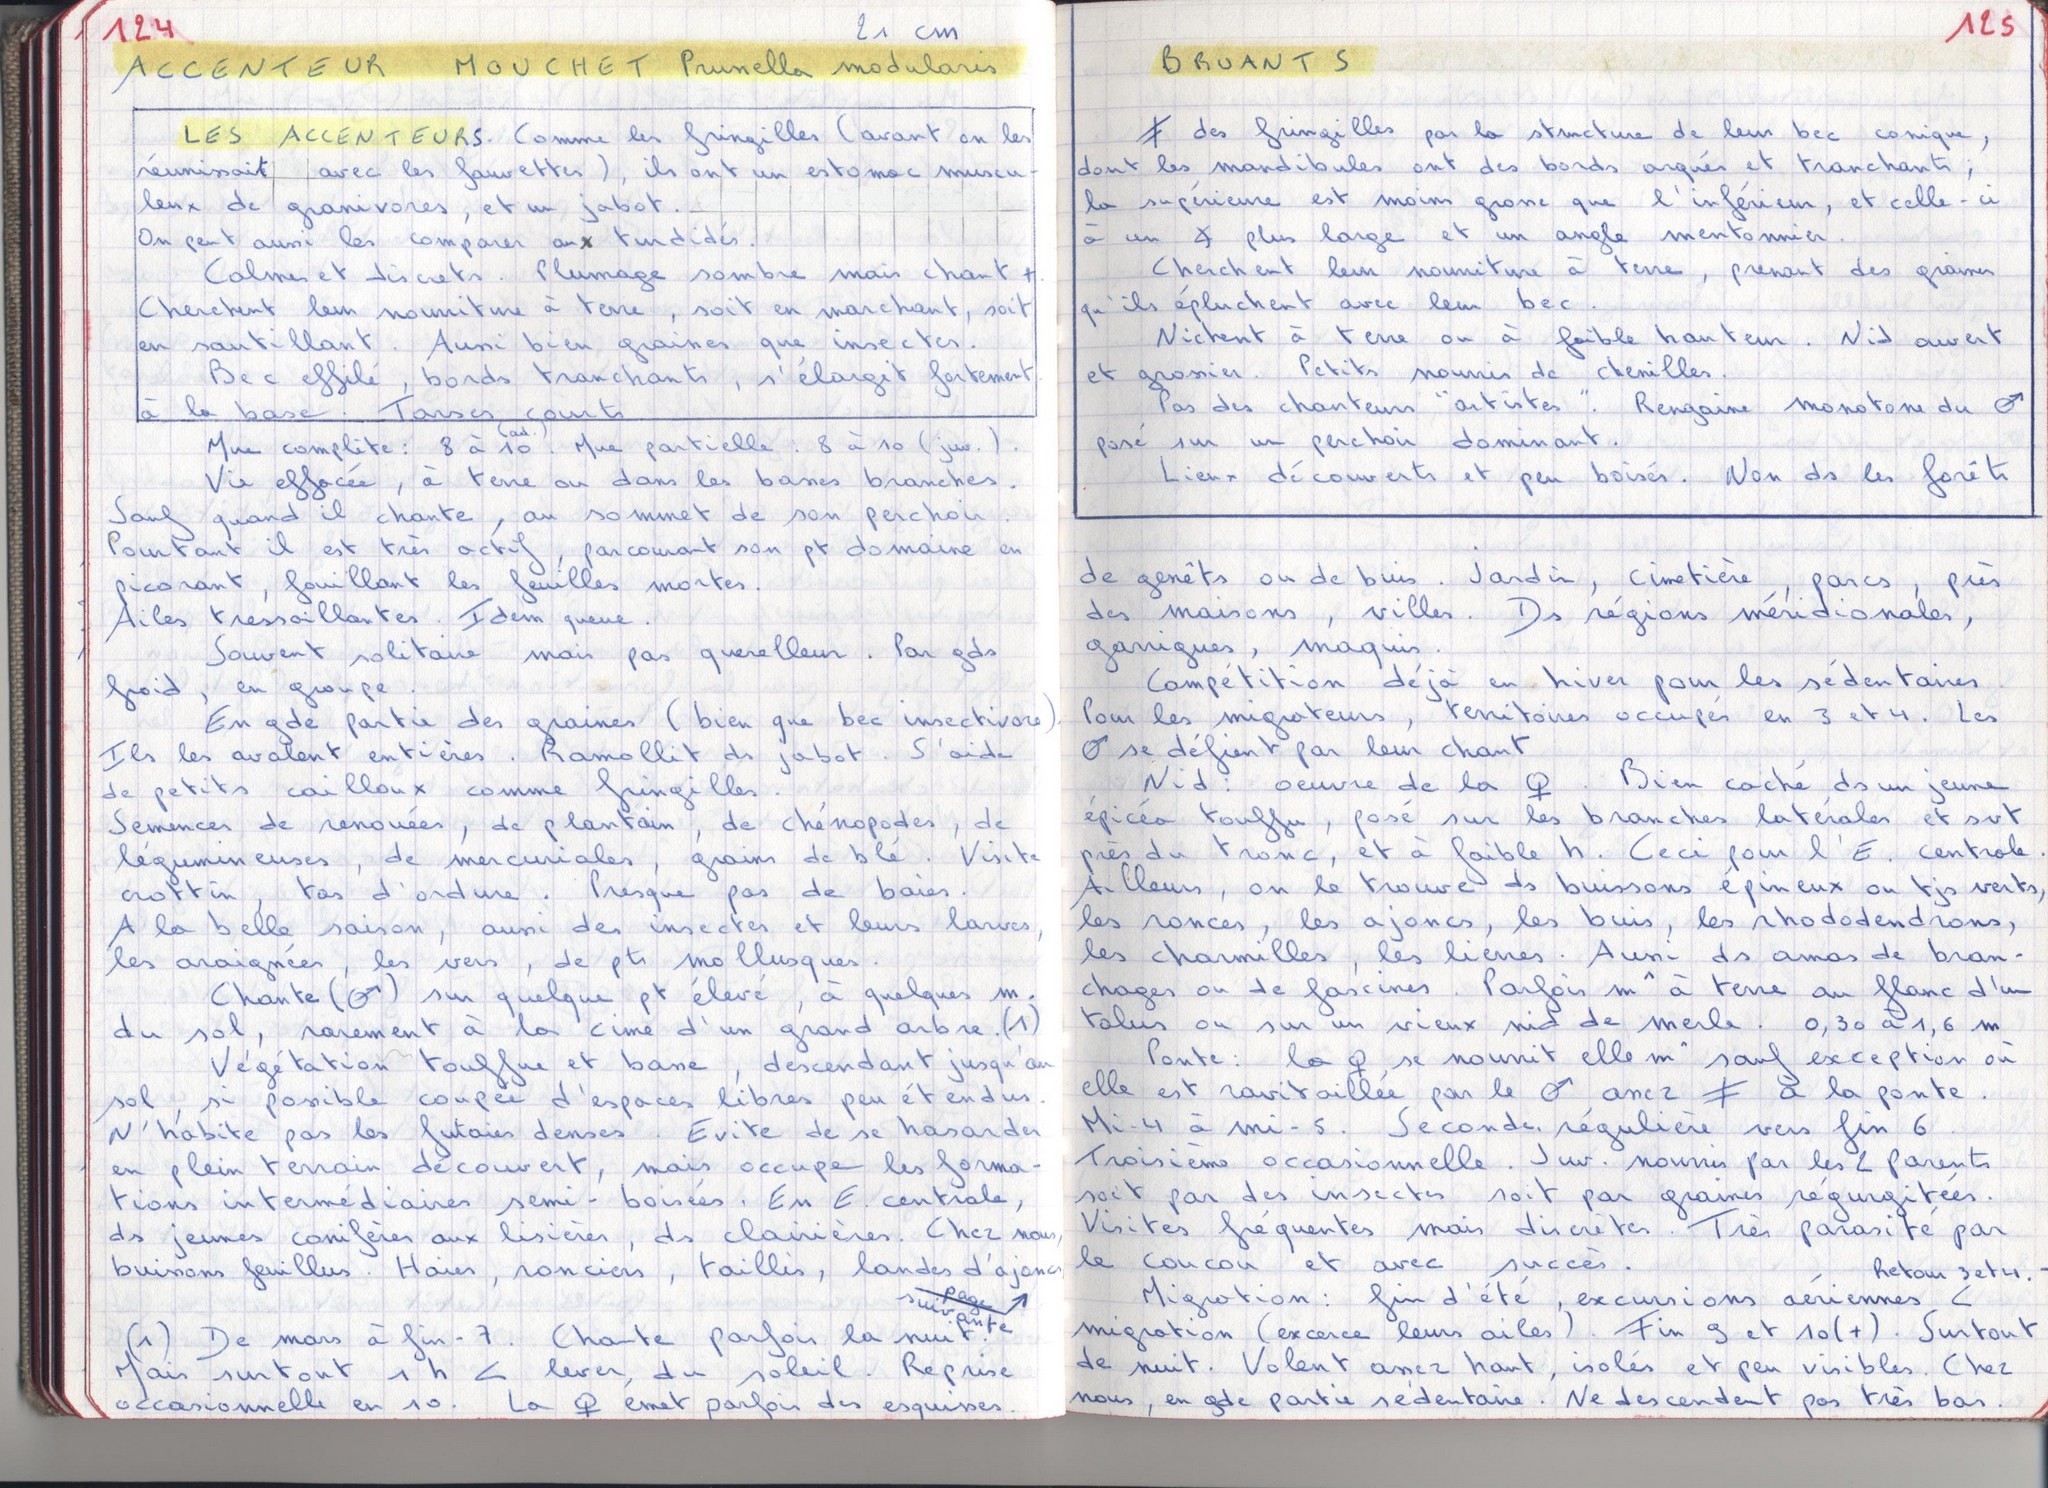 124
21 cm
ACCENTEUR MOUCHET Prunella modularis
LES ACCENTEURS. Comme les fringilles (avant on les
réunissait avec les fauvettes), ils ont un estomac muscu-
leux de granivores, et un jabot.
On peut aussi les comparer aux turdidés.
Calmes et discrets. Plumage sombre mais chant +.
Cherchent leur nourriture à terre, soit en marchant, soit
en sautillant. Aussi bien graines que insectes.
Bec effilé, bords tranchants, s'élargit fortement
à la base. Tarses courts
Mue complète : 8 à 10 (ad.). Mue partielle : 8 à 10 (juv.).
Vie effacée, à terre ou dans les basses branches.
Sauf quand il chante, au sommet de son perchoir.
Pourtant il est très actif, parcourant son pt domaine en
picorant, fouillant les feuilles mortes.
Ailes tressaillantes. Idem queue.
Souvent solitaire mais pas querelleur. Par gds
froid, en groupe.
En gde partie des graines (bien que bec insectivore).
Ils les avalent entières. Ramollit ds jabot. S'aide
de petits cailloux comme fringilles.
Semences de renouées, de plantain, de chénopodes, de
légumineuses, de mercuriales, grains de blé. Visite
crottin, tas d'ordure. Presque pas de baies.
A la belle saison, aussi des insectes et leurs larves,
les araignées, les vers, de pts mollusques.
Chante (♂) sur quelque pt élevé, à quelques m.
du sol, rarement à la cime d'un grand arbre. (1)
Végétation touffue et basse, descendant jusqu'au
sol, si possible coupée d'espaces libres peu étendus.
N'habite pas les futaies denses. Evite de se hasarder
en plein terrain découvert, mais occupe les forma-
tions intermédiaires semi-boisées. En E. centrale,
ds jeunes conifères aux lisières, ds clairières. Chez nous,
buissons feuillus. Haies, ronciers, taillis, landes d'ajoncs
page
suivante ↗
(1) De mars à fin-7. Chante parfois la nuit.
Mais surtout 1 h < lever du soleil. Reprise
occasionnelle en 10. La ♀ émet parfois des esquisses.
125
BRUANTS
≠ des fringilles par la structure de leur bec conique,
dont les mandibules ont des bords arqués et tranchants ;
la supérieure est moins grosse que l'inférieur, et celle-ci
à un plus large et un angle mentonnier.
Cherchent leur nourriture à terre, prenant des graines
qu'ils épluchent avec leur bec.
Nichent à terre ou à faible hauteur. Nid ouvert
et grossier. Petits nourris de chenilles.
Pas des chanteurs "artistes". Rengaine monotone du ♂
posé sur un perchoir dominant.
Lieux découverts et peu boisés. Non ds les forêts
de genêts ou de buis. Jardin, cimetière, parcs, près
des maisons, villes. Ds régions méridionales,
garrigues, maquis.
Compétition déjà en hiver pour les sédentaires.
Pour les migrateurs, territoires occupés en 3 et 4. Les
♂ se défient par leur chant
Nid : oeuvre de la ♀. Bien caché ds un jeune
épicéa touffu, posé sur les branches latérales et svt
près du tronc, et à faible h. Ceci pour l'E. centrale.
Ailleurs, on le trouve ds buissons épineux ou tjs verts,
les ronces, les ajoncs, les buis, les rhododendrons,
les charmilles, les lierres. Aussi ds amas de bran-
chages ou de fascines. Parfois m^ à terre au flanc d'un
talus ou sur un vieux nid de merle. 0,30 à 1,6 m
Ponte : la ♀ se nourrit elle m^ sauf exception où
elle est ravitaillée par le ♂ assez ≠ à la ponte.
Mi-4 à mi-5. Seconde régulière vers fin 6.
Troisième occasionnelle. Juv. nourris par les 2 parents
soit par des insectes soit par graines régurgitées.
Visites fréquentes mais discrètes. Très parasité par
le coucou et avec succès.
Retour 3 et 4.
Migration : fin d'été, excursions aériennes <
migration (excerce leurs ailes). Fin 9 et 10(+). Surtout
de nuit. Volent assez haut, isolés et peu visibles. Chez
nous, en gde partie sédentaire. Ne descendent pas très bas.